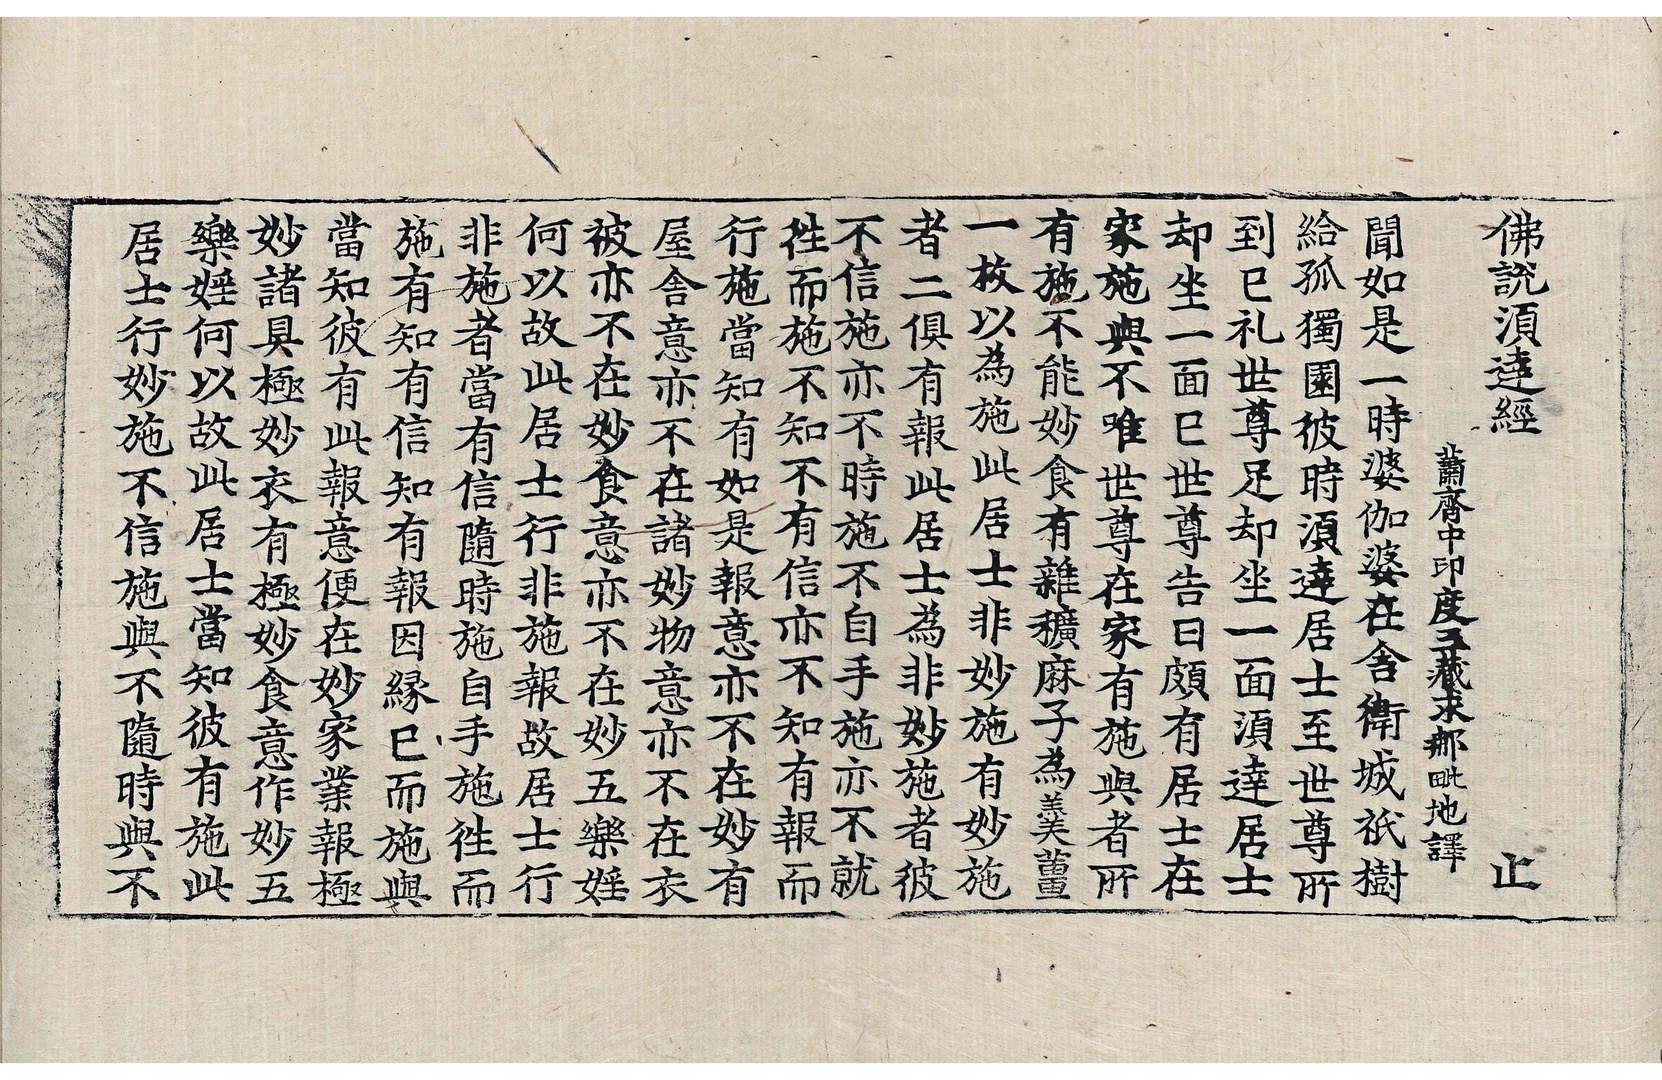 佛說湏達經 止
蕭齊中印度三藏求那毗地譯
聞如是一時婆伽婆在舍衛城祇樹
給孤獨園彼時湏達居士至世尊所
到已礼世尊足却坐一面湏達居士
却坐一面已世尊告曰頗有居士在
家施與不唯世尊在家有施與者所
有施不能妙食有雜穬麻子為羹薑
一枚以為施此居士非妙施有妙施
者二俱有報此居士為非妙施者彼
不信施亦不時施不自手施亦不就
徃而施不知不有信亦不知有報而
行施當知有如是報意亦不在妙有
屋舍意亦不在諸妙物意亦不在衣
被亦不在妙食意亦不在妙五樂婬
何以故此居士行非施報故居士行
非施者當有信隨時施自手施徃而
施有知有信知有報因緣已而施與
當知彼有此報意便在妙家業報極
妙諸具極妙衣有極妙食意作妙五
樂婬何以故此居士當知彼有施此
居士行妙施不信施與不隨時與不